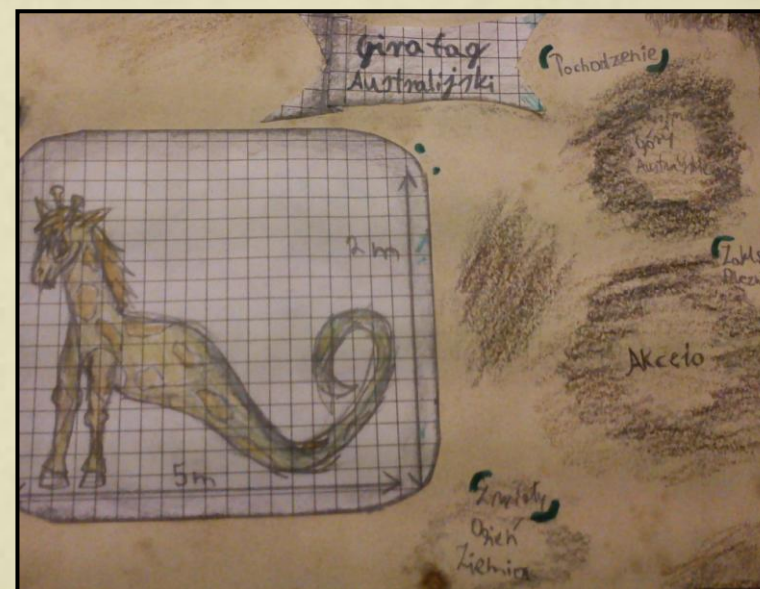 Giratag
Australijski
Pochodzenie
Góry
Australijskie
2 m
Akcelo
5 m
Żywioły
Ogień
Ziemia